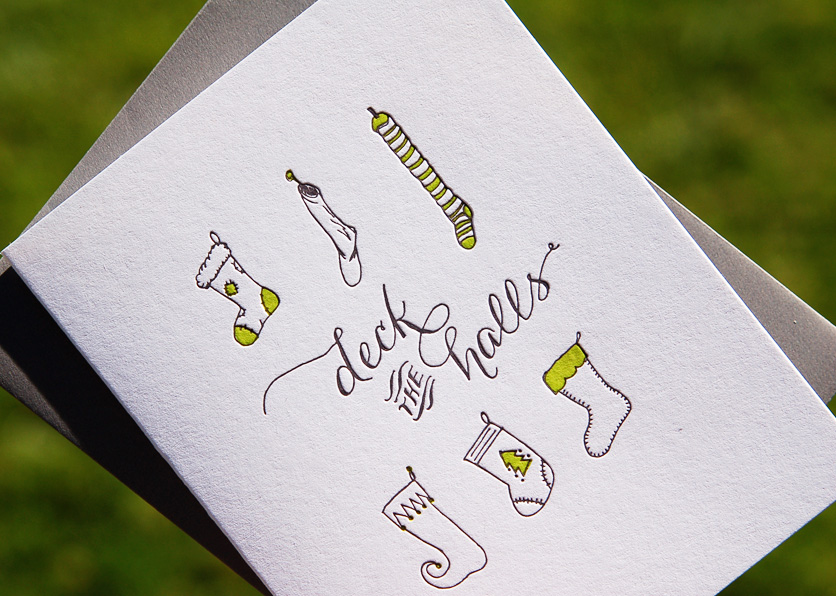 deck
THE
halls